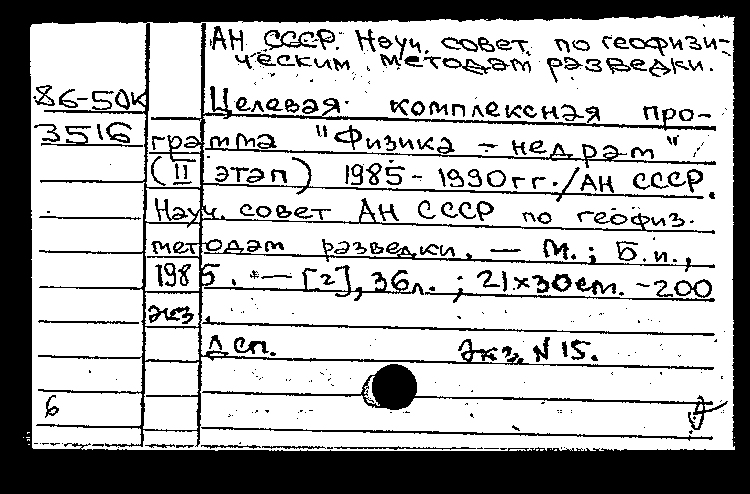 АН СССР. Науч. совет по геофизи-
ческим методам разведки.
86-50К
Целевая комплексная про-
3516
грамма "Физика - недрам"
(II этап) 1985-1990гг./АН СССР.
Науч. совет АН СССР по геофиз.
методам разведки. — М.; Б.и.,
1985. — [2], 36л. ; 21х30см. - 200
экз.
ДСП. Экз. N 15.
6